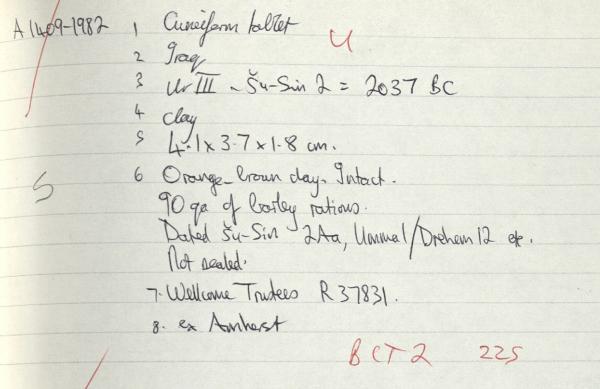 A 1409-1982 1 Cuneiform tablet
U
2 Iraq
3 Ur III - Šu-Sin 2 = 2037 BC
4 clay
5 4.1 x 3.7 x 1.8 cm.
S
6 Orange-brown clay. Intact.
90 qa of barley rations.
Dated Šu-Sin 2Aa, Ummal/Drehem 12
Not sealed.
7. Wellcome Trustees R 37831.
8. ex Amherst
BCT 2 225